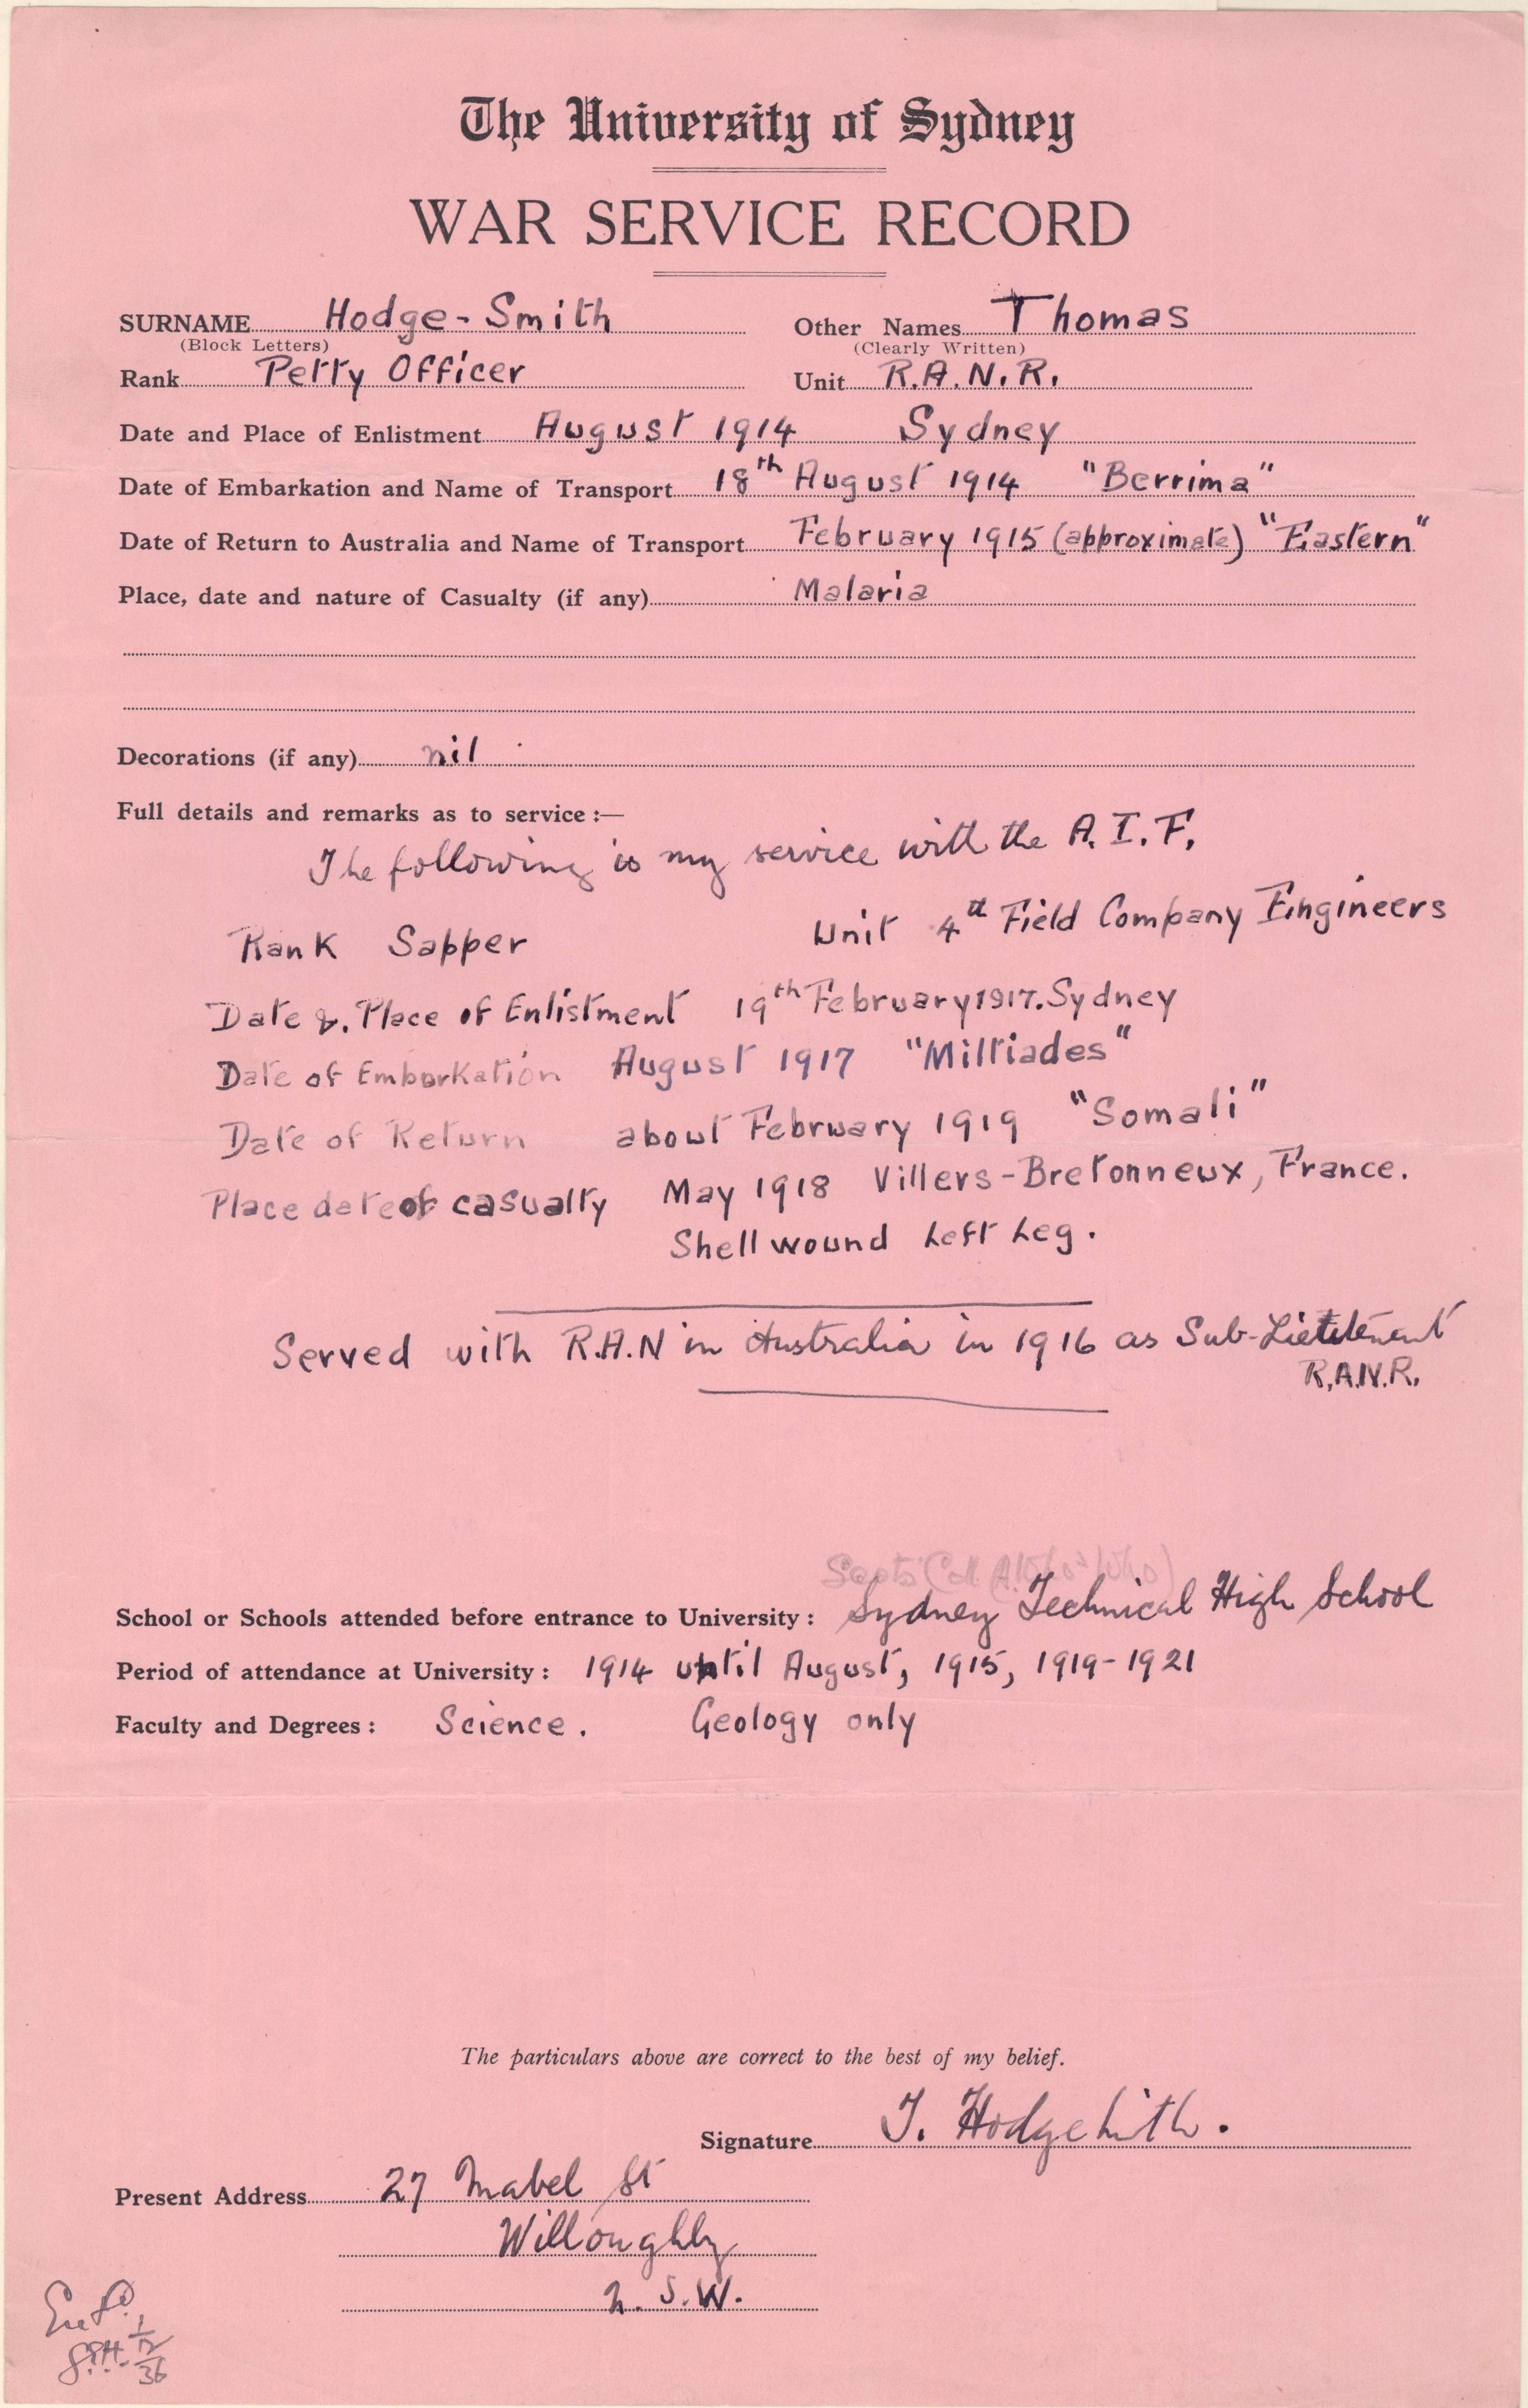 The University of Sydney
WAR SERVICE RECORD
SURNAME Hodge-Smith Other Names Thomas
(Block Letters) (Clearly Written)
Rank Petty Officer Unit R.A.N.R.
Date and Place of Enlistment August 1914 Sydney
Date of Embarkation and Name of Transport 18th August 1914 "Berrima"
Date of Return to Australia and Name of Transport February 1915 (approximate) "Eastern"
Place, date and nature of Casualty (if any) Malaria
Decorations (if any) nil
Full details and remarks as to service :—
The following is my service with the A.I.F.
Rank Sapper Unit 4th Field Company Engineers
Date &. Place of Enlistment 19th February 1917. Sydney
Date of Embarkation August 1917 "Miltiades"
Date of Return about February 1919 "Somali"
Place date of casualty May 1918 Villers-Bretonneux, France.
Shell wound Left Leg.
Served with R.A.N in Australia in 1916 as Sub-Lieutenant
R.A.N.R.
School or Schools attended before entrance to University : Sydney Technical High School
Period of attendance at University : 1914 until August, 1915, 1919-1921
Faculty and Degrees : Science. Geology only
The particulars above are correct to the best of my belief.
Signature T. Hodge Smith.
Present Address 27 Mabel St
Willoughby
N.S.W.
1/12/36